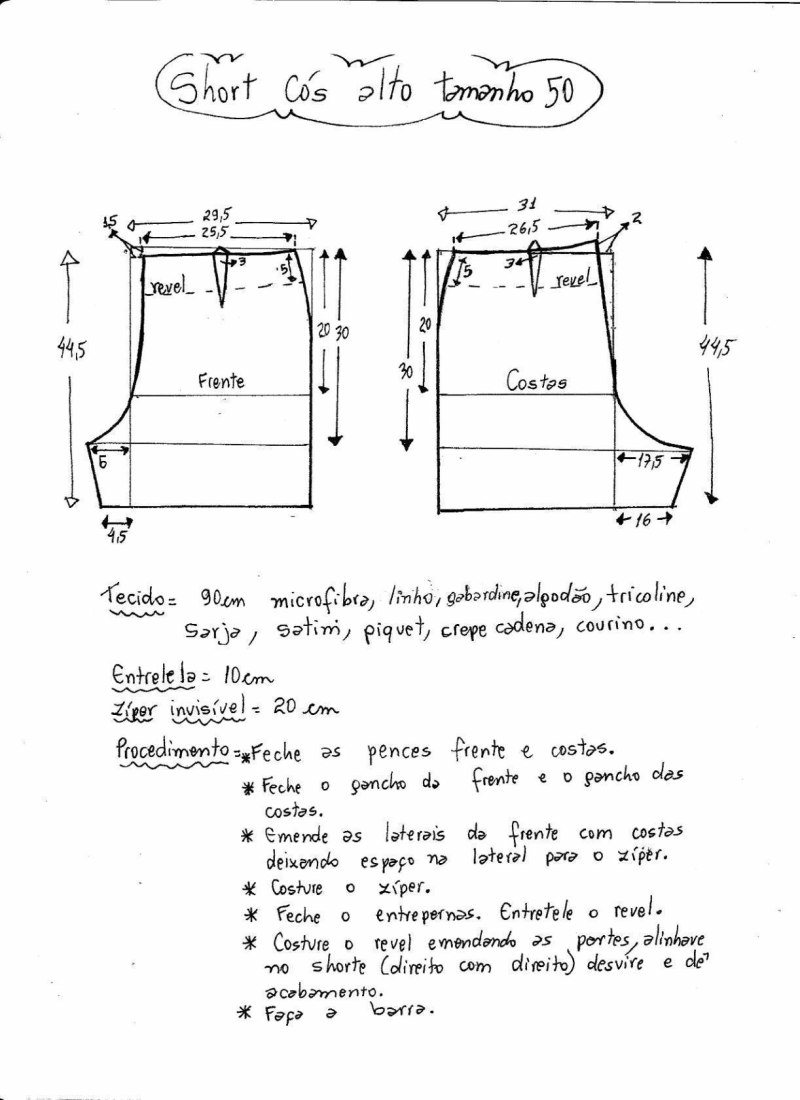 Short Cós alto tamanho 50
29,5
25,5
1,5
3
5
revel
20
30
44,5
Frente
6
4,5
31
26,5
2
3
5
revel
20
30
44,5
Costas
17,5
16
Tecido = 90cm microfibra, linho, gabardine, algodão, tricoline,
sarja, satim, piquet, crepe cadena, courino...
Entrelela = 10cm
Zíper invisível = 20 cm
Procedimento = * Feche as pences frente e costas.
* Feche o gancho da frente e o gancho das
costas.
* Emende as laterais da frente com costas
deixando espaço na lateral para o zíper.
* Costure o zíper.
* Feche o entrepernas. Entretele o revel.
* Costure o revel emendando as partes, alinhave
no shorte (direito com direito) desvire e dê
acabamento.
* Faça a barra.